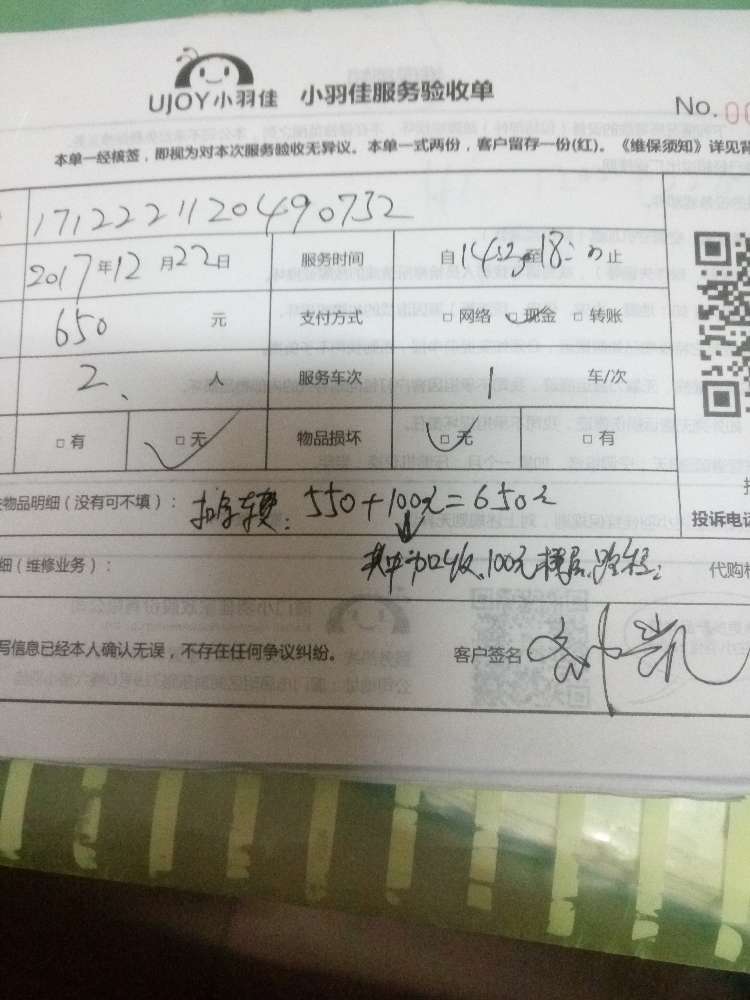 UJOY小羽佳 小羽佳服务验收单
No. 00
本单一经核签，即视为对本次服务验收无异议。本单一式两份，客户留存一份(红)。《维保须知》详见背
1712221120490732
2017年12月22日 服务时间 自14:02至18:00止
650 元 支付方式 □ 网络 □ 现金 □ 转账
2 人 服务车次 1 车/次
□ 有 □ 无 物品损坏 □ 无 □ 有
物品明细（没有可不填）： 550+100元=650元
投诉电话
细（维修业务）： 其中加收100元楼层、路程；
代购
写信息已经本人确认无误，不存在任何争议纠纷。 客户签名